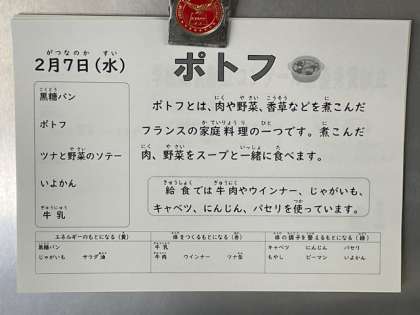 2月7日(水)
ポトフ
黒糖パン
ポトフ
ツナと野菜のソテー
いよかん
牛乳
ポトフとは、肉や野菜、香草などを煮こんだ
フランスの家庭料理の一つです。煮こんだ
肉、野菜をスープと一緒に食べます。
給食では牛肉やウインナー、じゃがいも、
キャベツ、にんじん、パセリを使っています。
エネルギーのもとになる(黄)
黒糖パン
じゃがいも サラダ油
体をつくるもとになる(赤)
牛乳
牛肉 ウインナー ツナ缶
体の調子を整えるもとになる(緑)
キャベツ にんじん パセリ
もやし ピーマン いよかん